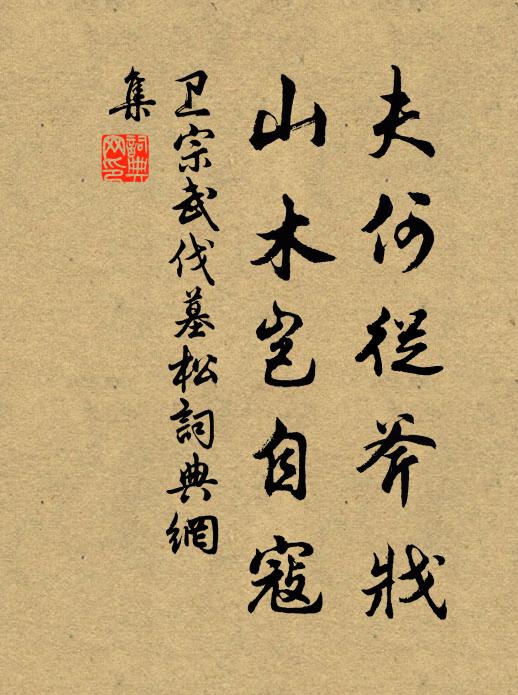 夫何從斧戕
山木豈自寇
卫宗武伐墓松詞典網
集
詞典网印